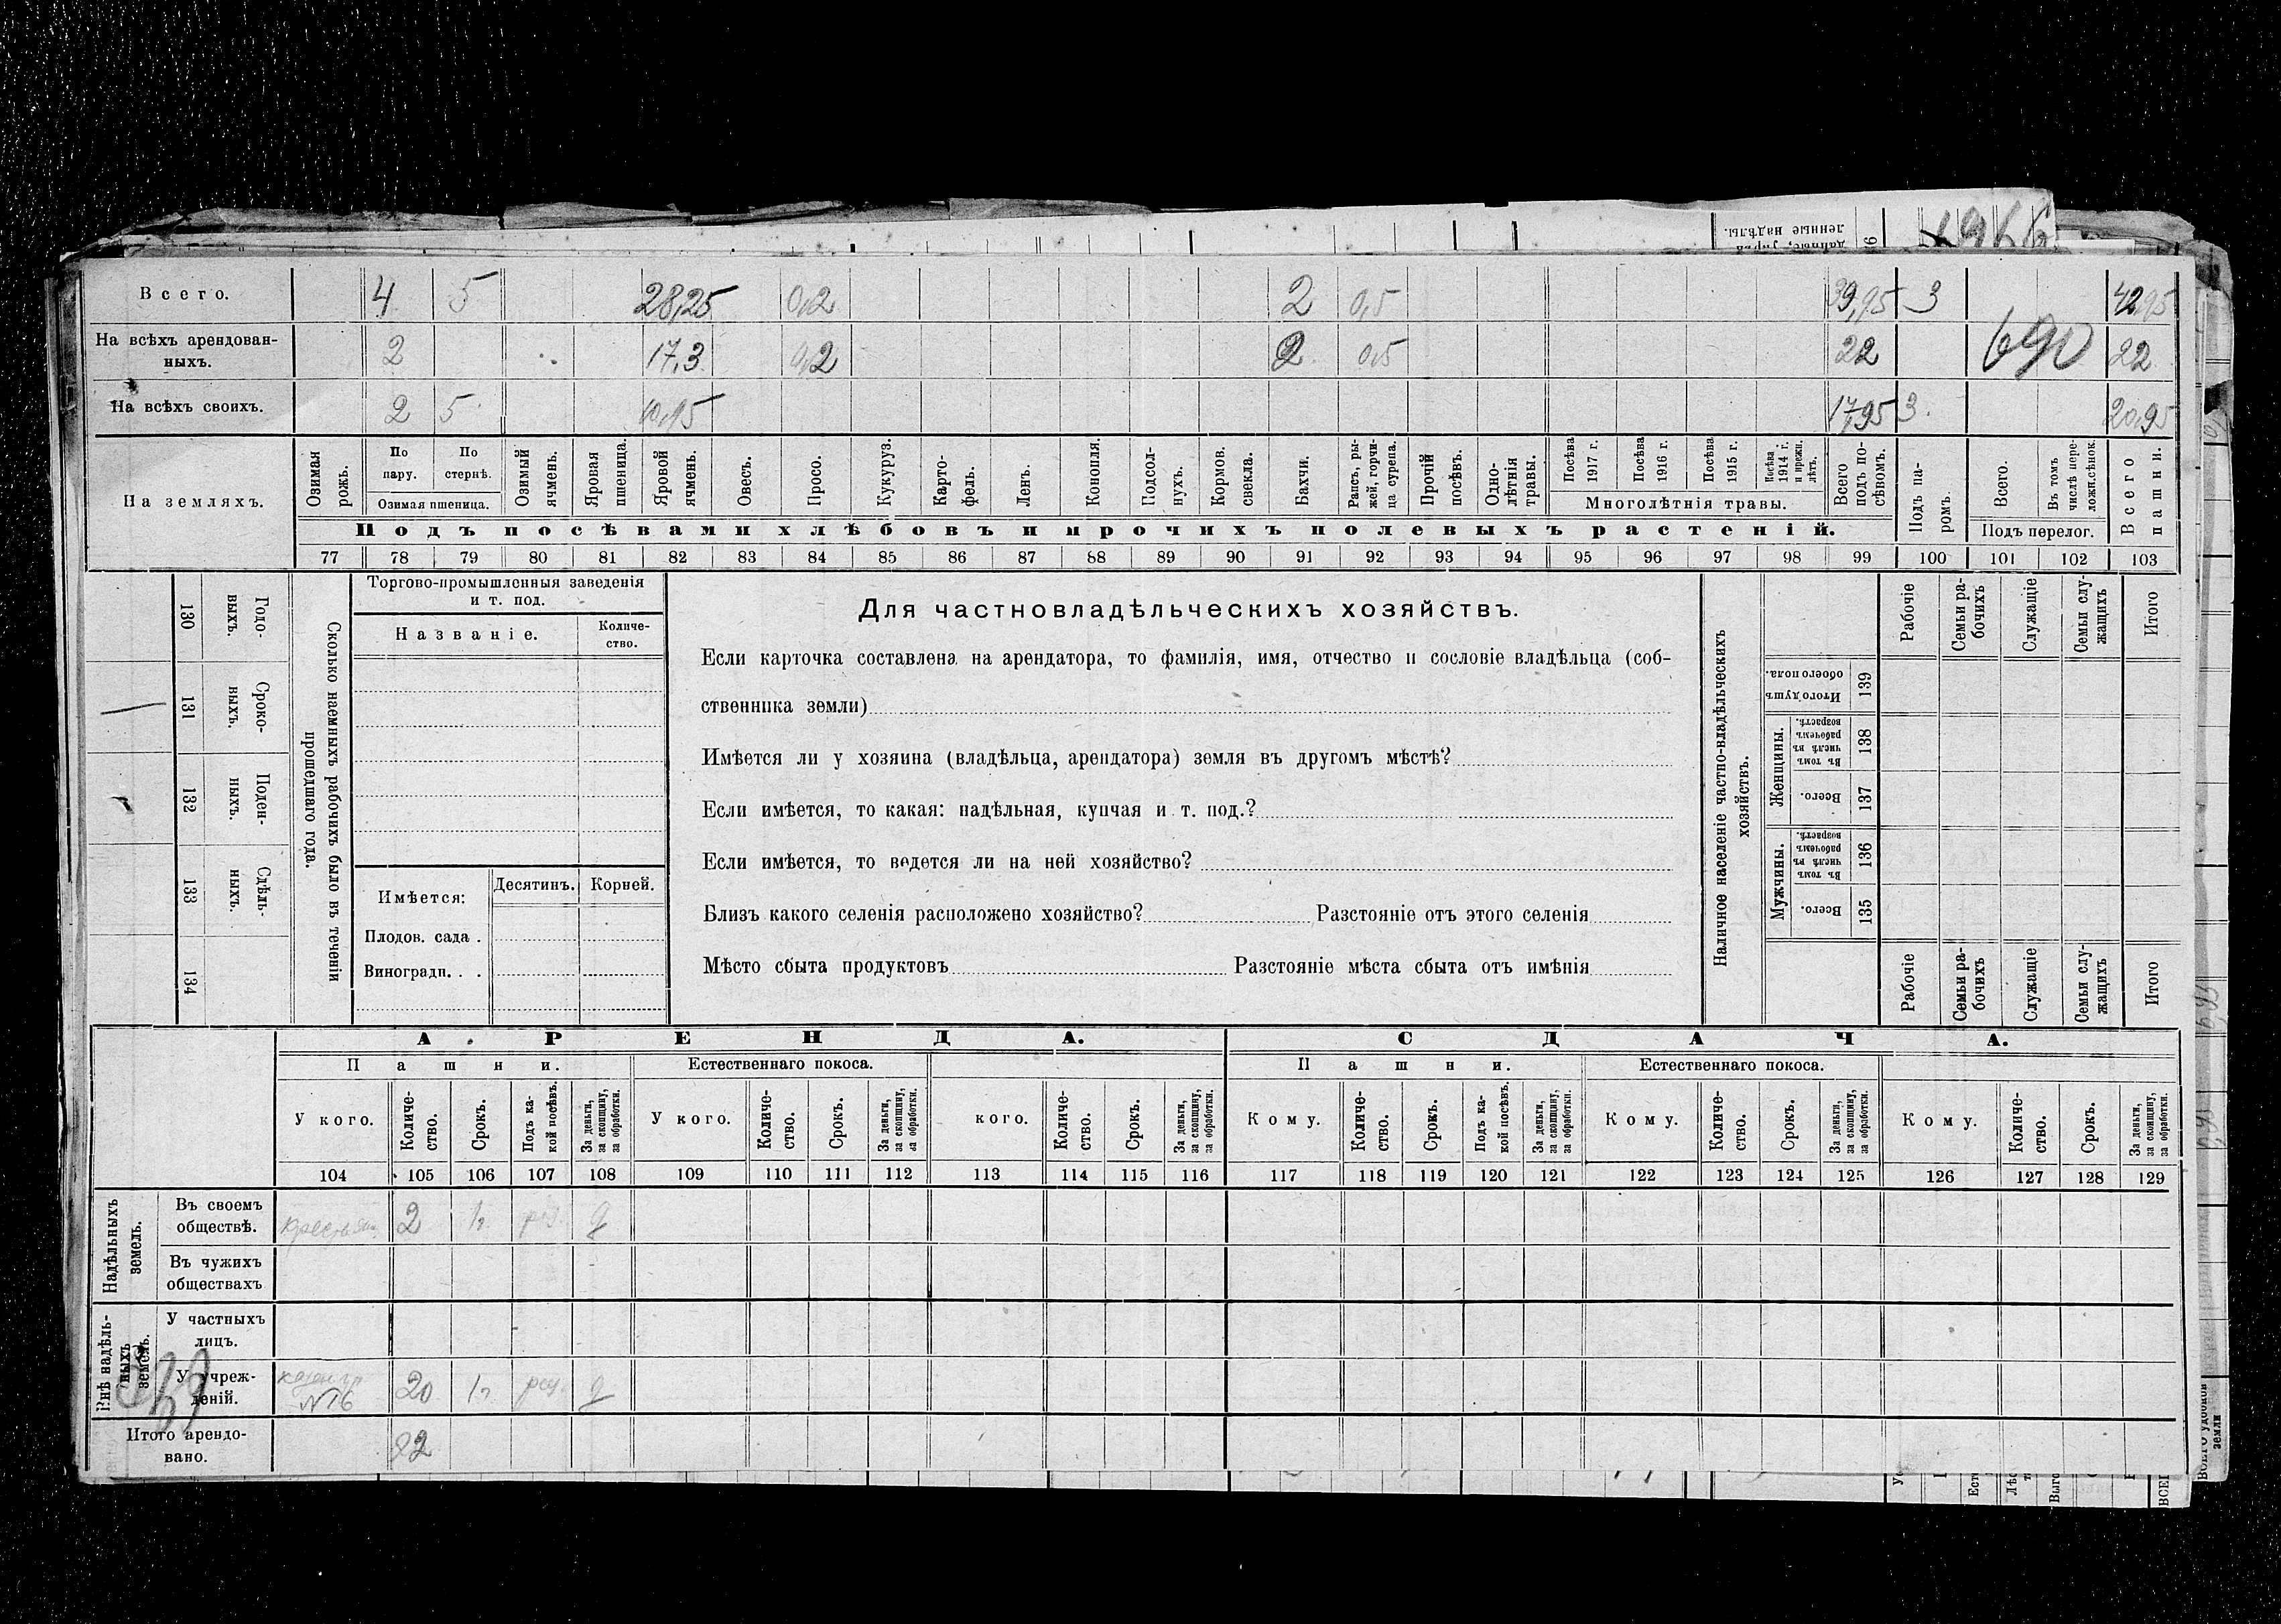 данные, укреп-
ленные надѣлы.
Всего. 4 5 28,25 0,2 2 0,5 39,95 3 42,95
На всѣхъ арендован-
ныхъ. 2 17,3 0,2 2 0,5 22 690 22
На всѣхъ своихъ. 2 5 10,95 17,95 3 20,95
На земляхъ.
Озимая рожь.
По пару.
По стернѣ.
Озимая пшеница.
Озимый ячмень.
Яровая пшеница.
Яровой ячмень.
Овесъ.
Просо.
Кукуруз.
Карто-
фель.
Ленъ.
Конопля.
Подсол-
нухъ.
Кормов.
свекла.
Бахчи.
Рапсъ, ры-
жей, горчи-
ца сурепа.
Прочій
посѣвъ.
Одно-
лѣтнія
травы.
Посѣва
1917 г.
Посѣва
1916 г.
Посѣва
1915 г.
Посѣва
1914 г.
и прежн.
лѣтъ.
Многолѣтнія травы.
Всего
подъ по-
сѣвомъ.
Подъ па-
ромъ.
Всего.
Въ томъ
числѣ пере-
ложн.сѣнок.
Подъ перелог.
Всего
пашни.
Подъ посѣвами хлѣбовъ и прочихъ полевыхъ растеній.
77 78 79 80 81 82 83 84 85 86 87 88 89 90 91 92 93 94 95 96 97 98 99 100 101 102 103
130 Годо-
выхъ.
131 Сроко-
выхъ.
132 Поден-
ныхъ.
133 Сдѣль-
ныхъ.
134
Сколько наемныхъ рабочихъ было въ теченіи
прошедшаго года.
Торгово-промышленныя заведенія
и т. под.
Названіе.
Количе-
ство.
Имѣется:
Десятинъ.
Корней.
Плодов. сада .
Виноградн. . .
Для частновладѣльческихъ хозяйствъ.
Если карточка составлена на арендатора, то фамилія, имя, отчество и сословіе владѣльца (соб-
ственника земли)
Имѣется ли у хозяина (владѣльца, арендатора) земля въ другомъ мѣстѣ?
Если имѣется, то какая: надѣльная, купчая и т. под.?
Если имѣется, то ведется ли на ней хозяйство?
Близъ какого селенія расположено хозяйство? Разстояніе отъ этого селенія
Мѣсто сбыта продуктовъ Разстояніе мѣста сбыта отъ имѣнія
Наличное населеніе частно-владѣльческихъ
хозяйствъ.
Рабочіе
Семьи ра-
бочихъ
Служащіе
Семьи слу-
жащихъ
Итого
Итого душъ
обоего пола. 139
Женщины.
Въ томъ
числѣ въ
рабочемъ
возрастѣ. 138
Всего. 137
Мужчины.
Въ томъ
числѣ въ
рабочемъ
возрастѣ. 136
Всего. 135
Рабочіе
Семьи ра-
бочихъ
Служащіе
Семьи слу-
жащихъ
Итого
АРЕНДА. СДАЧА.
Пашни. Естественнаго покоса. Пашни. Естественнаго покоса.
У кого.
Количе-
ство.
Срокъ.
Подъ ка-
кой посѣвъ.
За деньги,
за скопщину,
за обработки.
У кого.
Количе-
ство.
Срокъ.
За деньги,
за скопщину,
за обработки.
кого.
Количе-
ство.
Срокъ.
За деньги,
за скопщину,
за обработки.
Кому.
Количе-
ство.
Срокъ.
Подъ ка-
кой посѣвъ.
За деньги,
за скопщину,
за обработки.
Кому.
Количе-
ство.
Срокъ.
За деньги,
за скопщину,
за обработки.
Кому.
Количе-
ство.
Срокъ.
За деньги,
за скопщину,
за обработки.
104 105 106 107 108 109 110 111 112 113 114 115 116 117 118 119 120 121 122 123 124 125 126 127 128 129
Надѣльныхъ
земель.
Въ своемъ
обществѣ. 2 1г. д
Въ чужихъ
обществахъ
Внѣ надѣль-
ныхъ
земель.
У частныхъ
лицъ.
У учреж-
деній. №6 20 1г. д
Итого арендо-
вано. 22